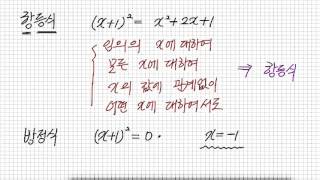 항등식 (x+1)² = x²+2x+1
임의의 x에 대하여
모든 x에 대하여
x의 값에 관계없이 ⇒ 항등식
어떤 x에 대하여서도
방정식 (x+1)² = 0. x=-1